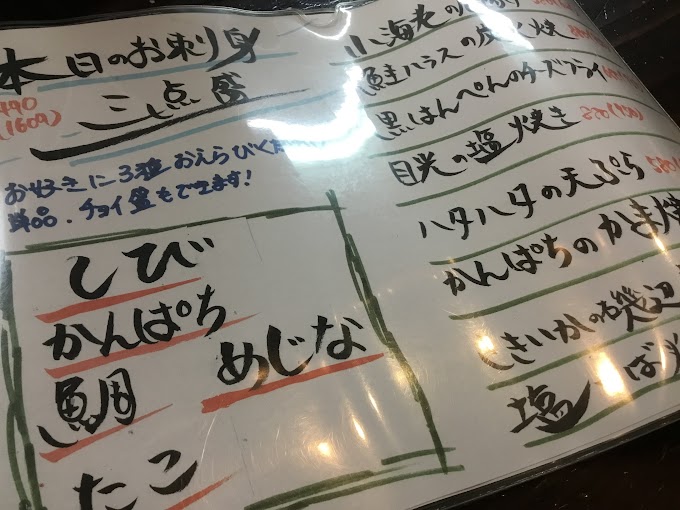 本日のお刺身
三点盛
(1609)
お好きに3種おえらびくだ
単品・チョイ盛もできます!
しび
かんぱち
めじな
鯛
たこ
小海老の
鮭ハラスの炭火焼
黒はんぺんのチーズフライ
目光の塩焼き
ハタハタの天ぷら
かんぱちのかま焼
きいかの磯辺
塩